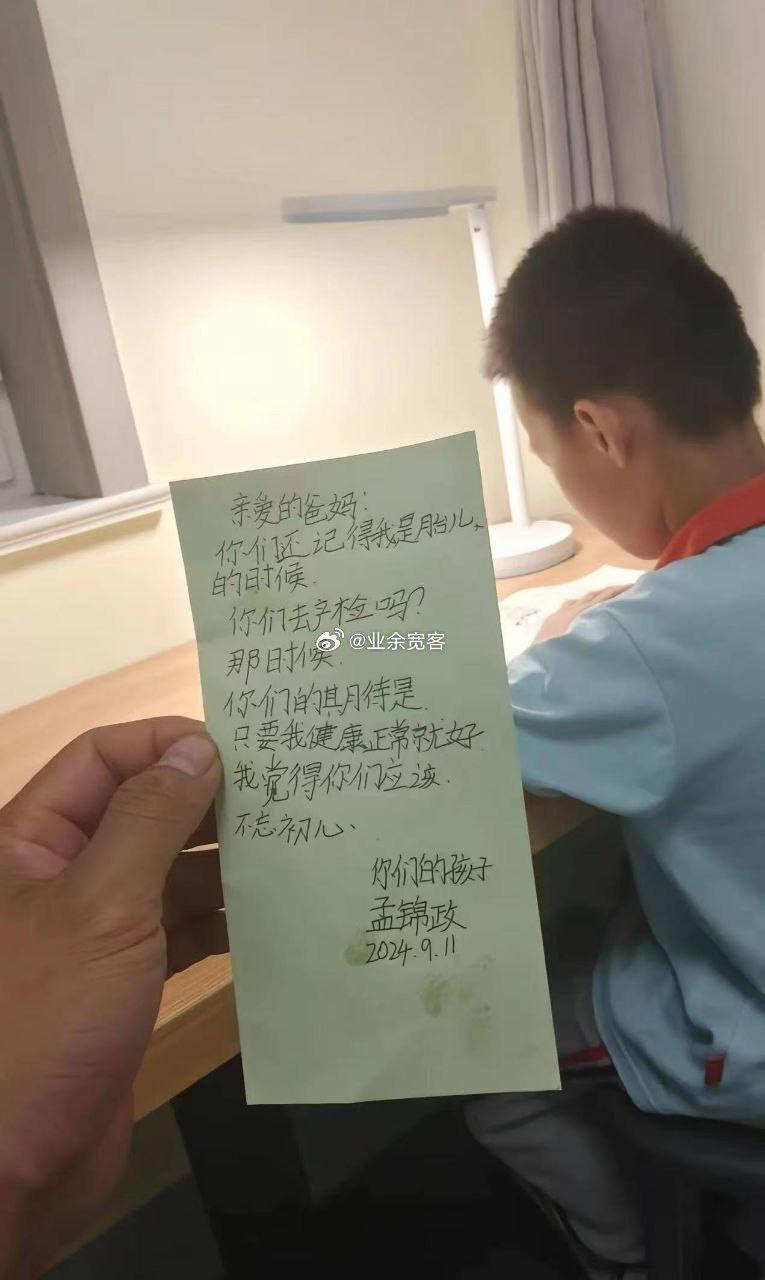 亲爱的爸妈：
你们还记得我是胎儿、
的时候.
你们去产检吗？
@业余宽客
那时候.
你们的期待是.
只要我健康正常就好
我觉得你们应该.
不忘初心、
你们的孩子
孟锦政
2024.9.11